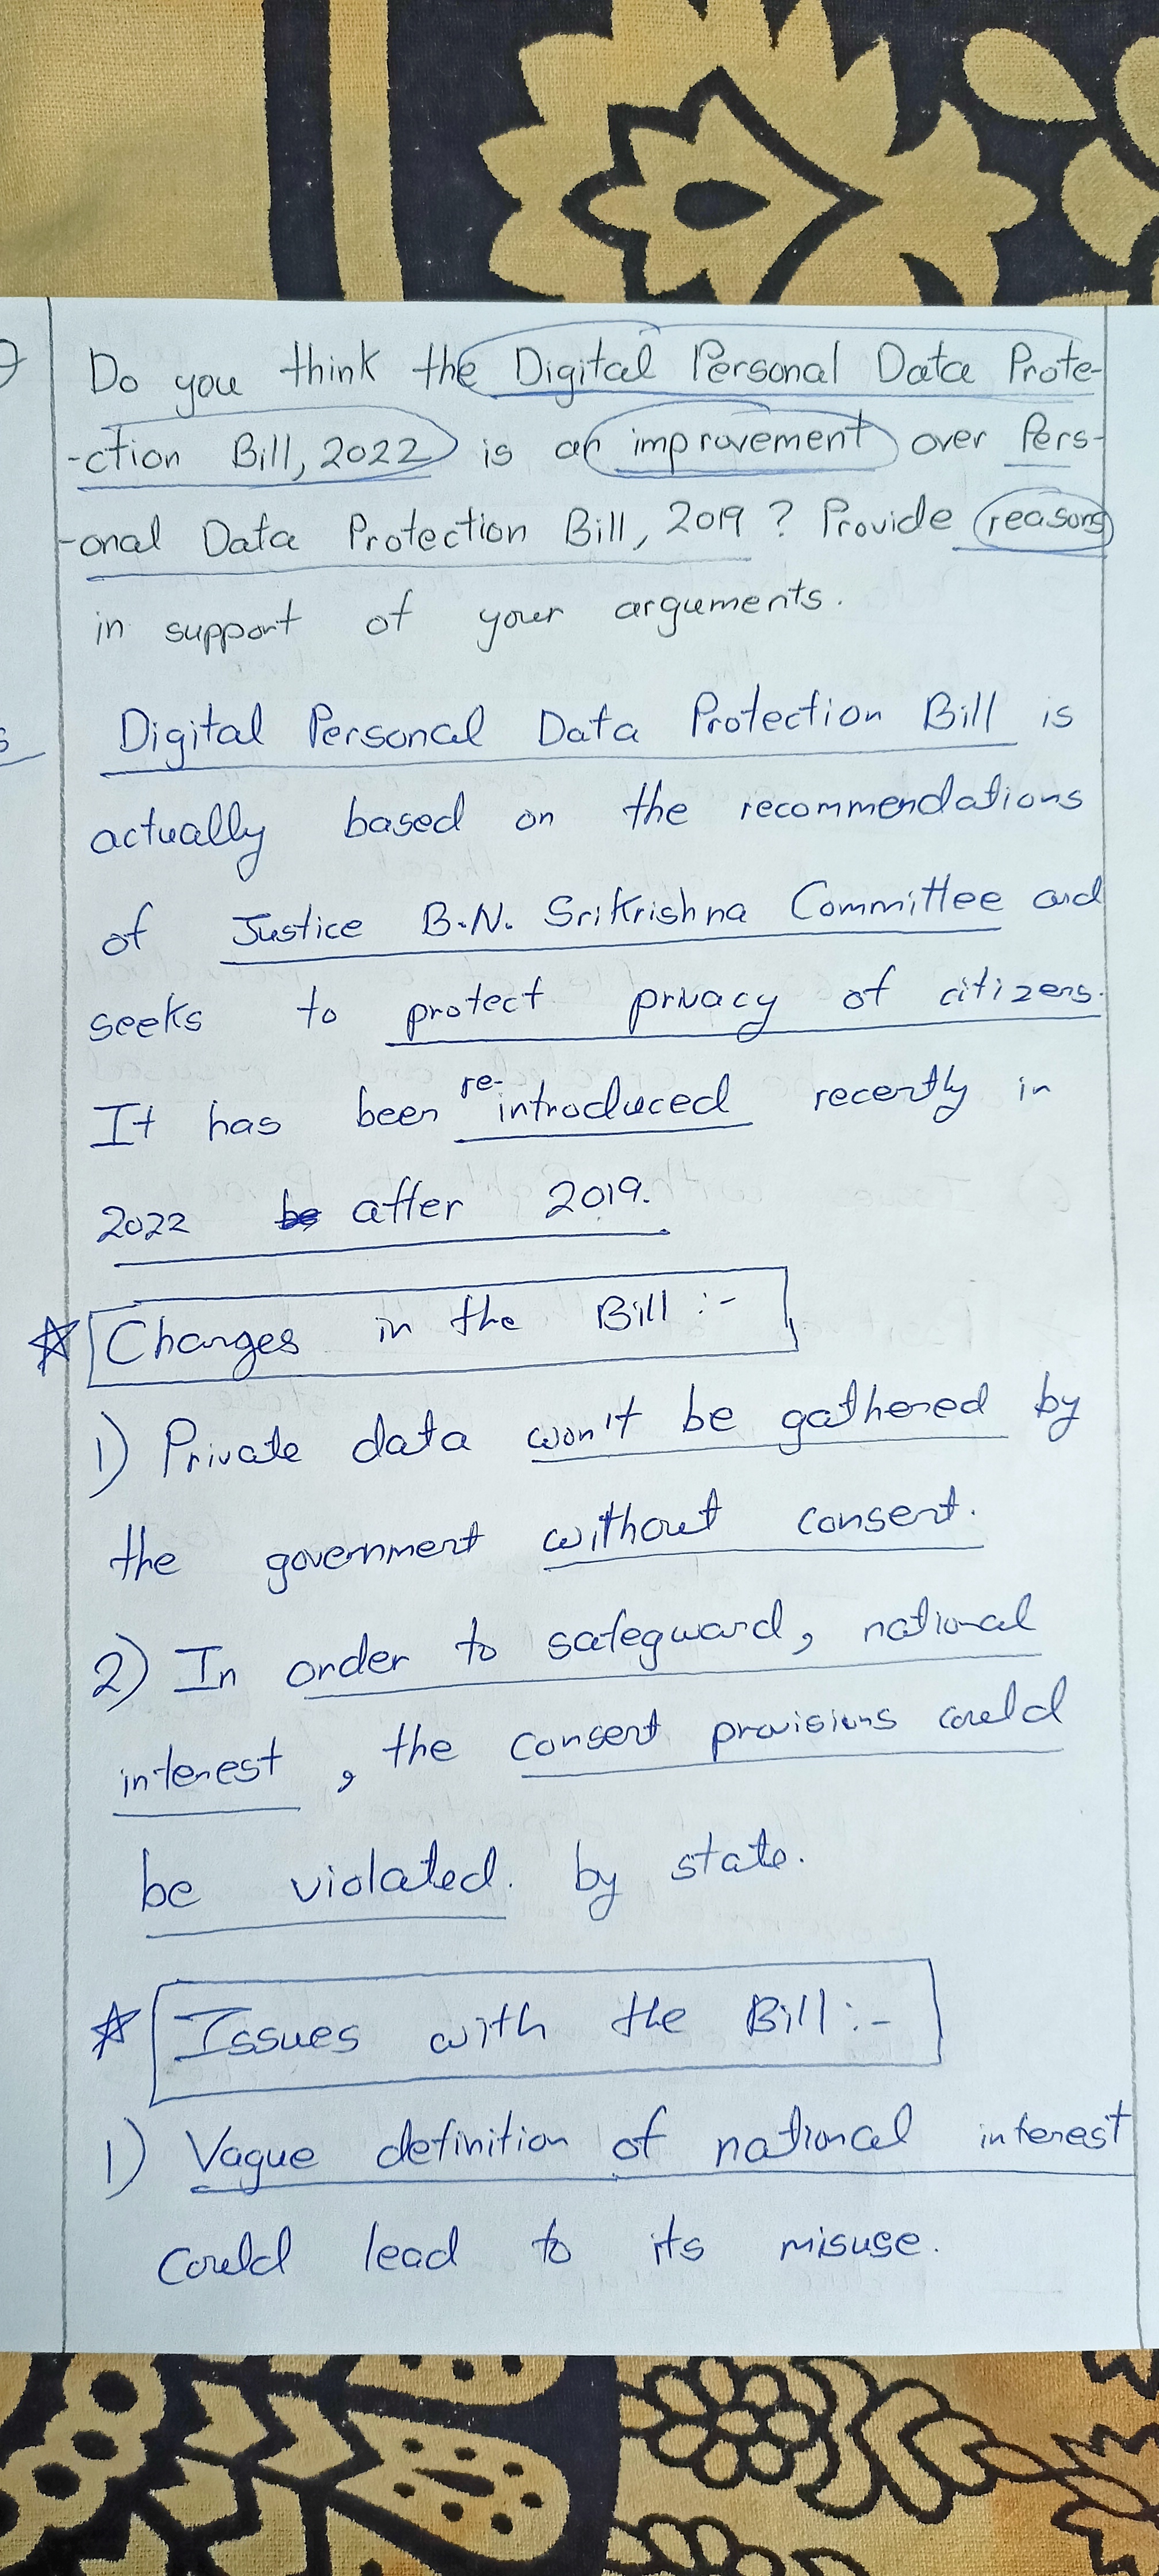 Do you think the Digital Personal Data Prote-
-ction Bill, 2022 is an improvement over Pers-
-onal Data Protection Bill, 2019 ? Provide reasons
in support of your arguments.
Digital Personal Data Protection Bill is
actually based on the recommendations
of Justice B.N. Srikrishna Committee and
seeks to protect privacy of citizens.
It has been re-introduced recently in
2022 be after 2019.
Changes in the Bill :-
1) Private data won't be gathered by
the government without consent.
2) In order to safeguard, national
interest, the consent provisions could
be violated. by state.
Issues with the Bill :-
1) Vague definition of national interest
could lead to its misuse.